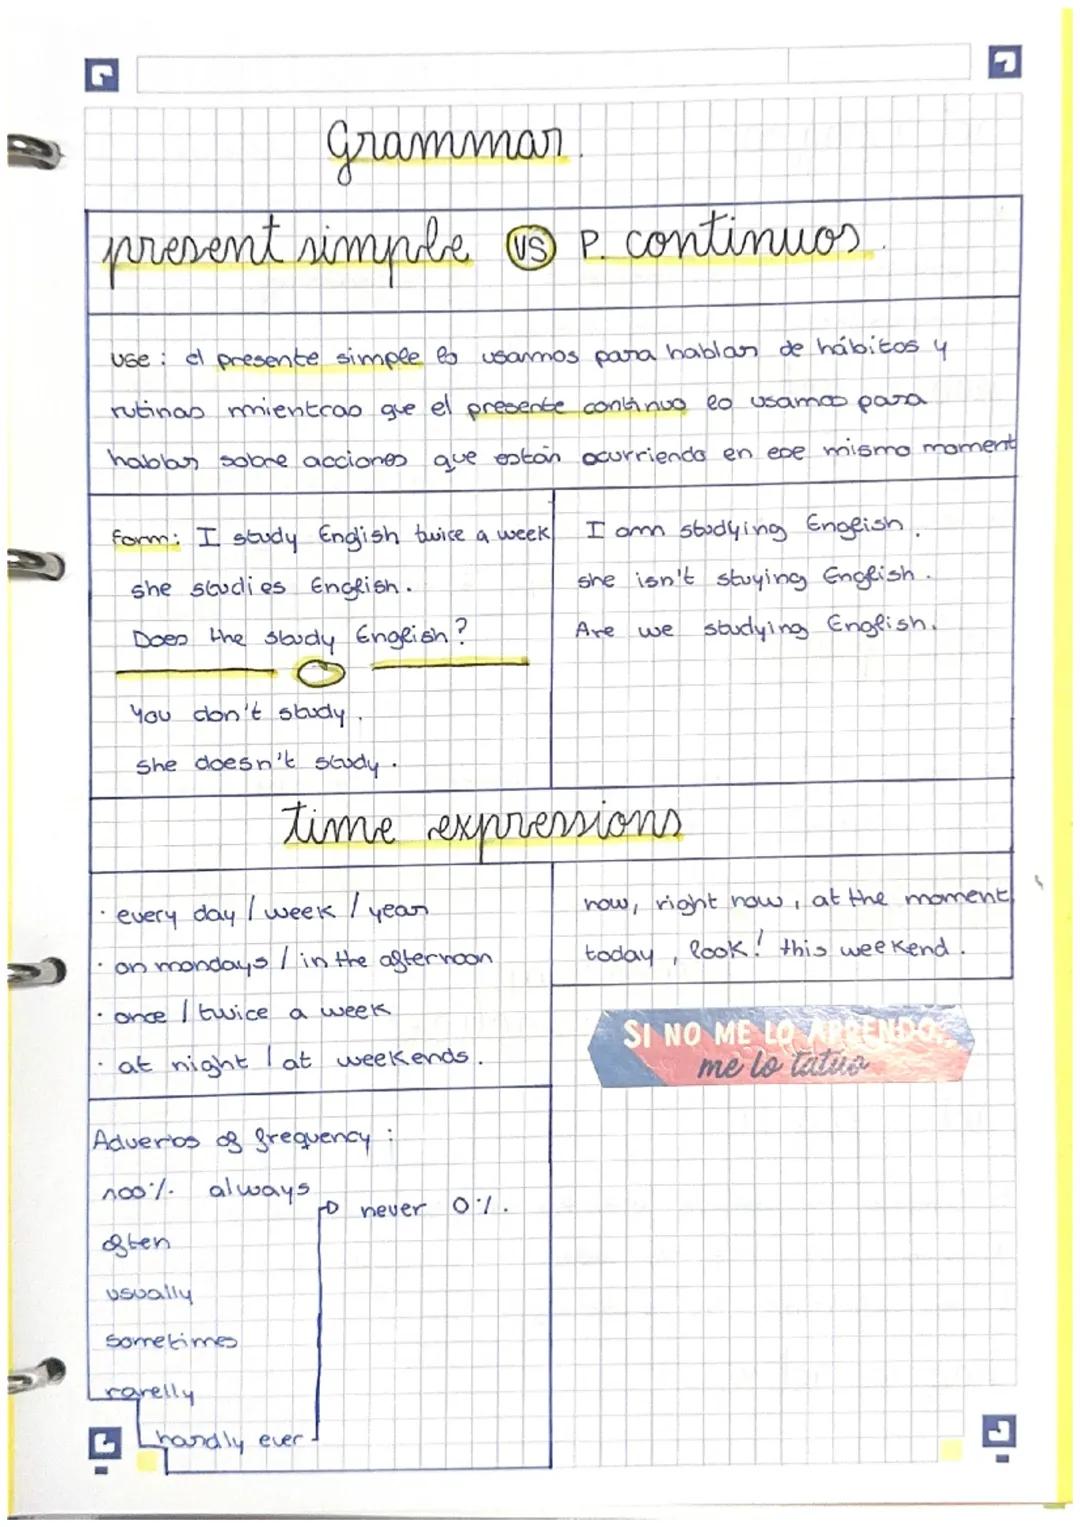 Grammar.
present simple VS P. continuos.
use: el presente simple lo usamos para hablar de hábitos y
rutinas mientras que el presente continuo lo usamos para
hablar sobre acciones que están ocurriendo en ese mismo moment
form: I study English twice a week
she studies English.
Does the study English?
You don't study.
she doesn't study.
I am studying English.
she isn't stuying English.
Are we studying English.
time expressions
· every day / week / year
· on mondays / in the afternoon
· once / twice a week
· at night / at weekends.
now, right now, at the moment
today, look! this weekend.
SI NO ME LO APRENDO...
me lo tatuo
Adverbs of frequency:
100% always
often
usually
sometimes
rarelly
hardly ever
never 0%.